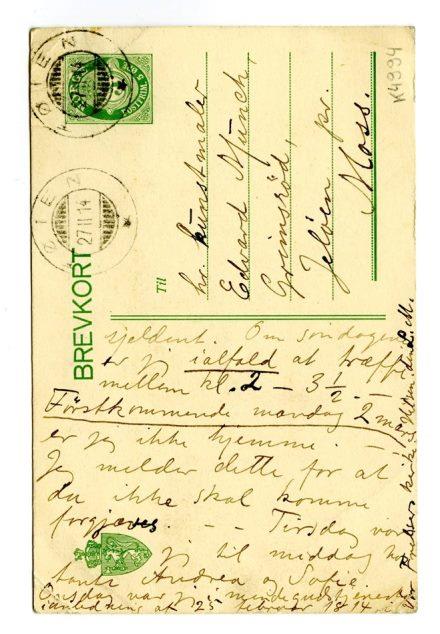 K4994
TØIEN
27 II 14
TØIEN
27 II 14
POSTFRIM
5 ØRE
BREVKORT
Til
hr. kunstmaler
Edvard Munch,
Grimsrød,
Jeløen pr.
Moss.
sjeldent. Om søndagen
er jeg ialfald at træffe
mellem kl. 2 – 3 ½. –
Förstkommende mandag 2 mars
er jeg ikke hjemme. –
Jeg melder dette for at
du ikke skal komme
forgjæves. – – Tirsdag var
jeg til middag hos
tante Andrea og Sofie.
Onsdag var jeg i mindegudstjeneste
ianledning af 25 februar 1814 i
Vor Frelsers kirke. Hilsen din L. M.